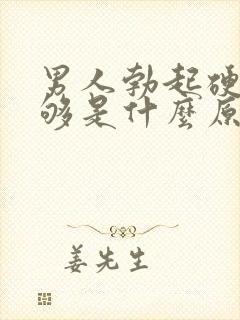 男人勃起硬
够是什麼原
姜先生